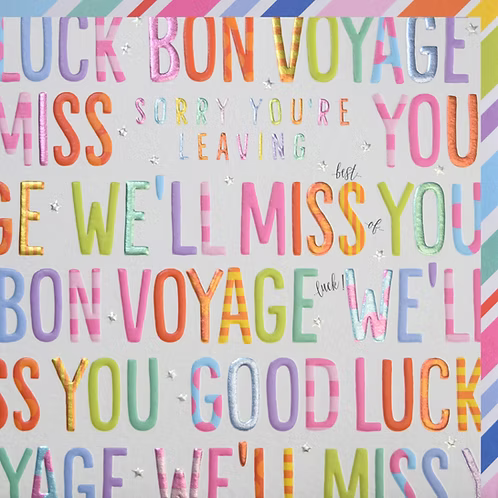 LUCK BON VOYAGE
MISS SORRY YOU'RE LEAVING YOU
GE WE'LL MISS YOU
best of luck!
BON VOYAGE WE'LL
SS YOU GOOD LUCK
YAGE WE'LL MISS Y